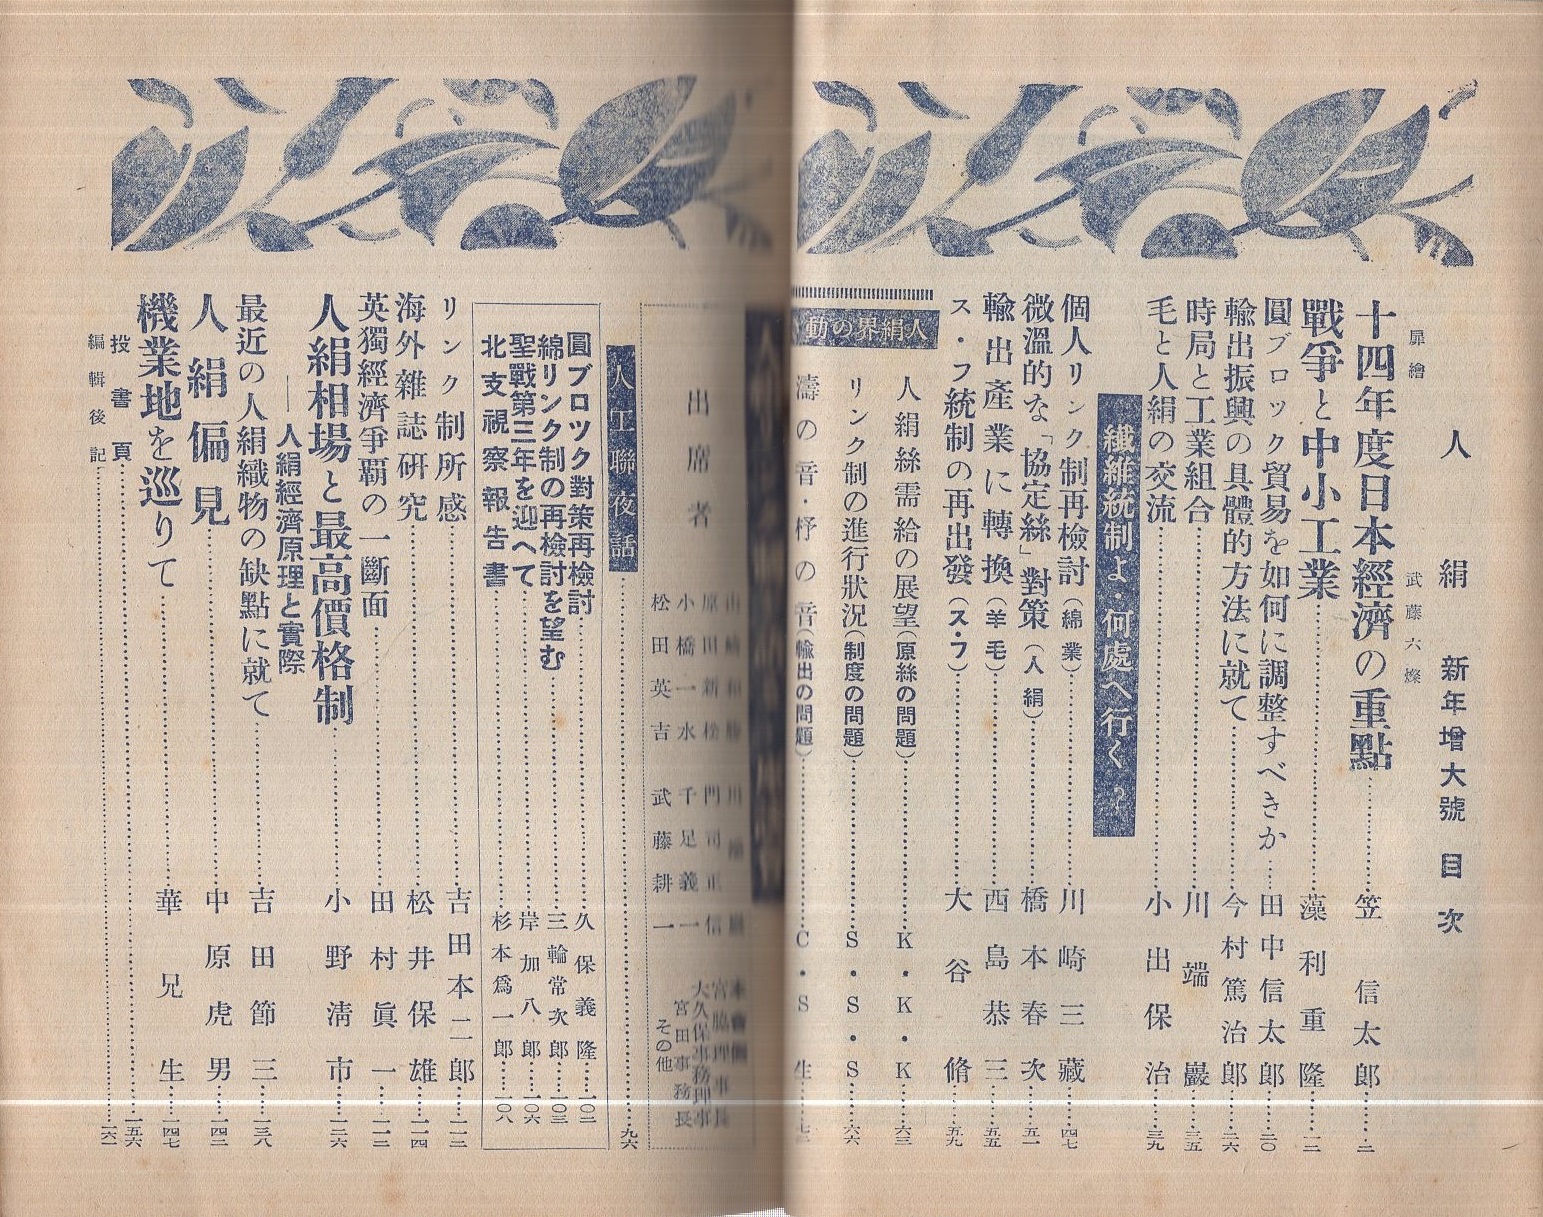 人絹 新年增大號 目次
扉繪 武藤六燦
十四年度日本經濟の重點 笠信太郎 二
戰爭と中小工業 藻利重隆 一二
圓ブロック貿易を如何に調整すべきか 田中信太郎 二〇
輸出振興の具體的方法に就て 今村篤治郎 二六
時局と工業組合 川端巖 三五
毛と人絹の交流 小出保治 三九
纖維統制よ・何處へ行く?
個人リンク制再檢討(綿業) 川崎三藏 四七
微溫的な「協定絲」對策(人絹) 橋本春次 五一
輸出產業に轉換(羊毛) 西島恭三 五五
ス・フ統制の再出發(ス・フ) 大谷脩 五九
人絹界の動
人絹絲需給の展望(原絲の問題) K・K・K 六三
リンク制の進行狀況(制度の問題) S・S・S 六六
濤の音・杼の音(輸出の問題) C・S生 七二
出席者
原田新 門司正信
小橋一水 千足義一
松田英吉 武藤耕一
宮脇理事長
大久保事務理事
宮田事務長
その他
人工聯夜話 九六
圓ブロツク對策再檢討 久保義隆 一〇二
綿リンク制の再檢討を望む 三輪常次郎 一〇三
聖戰第三年を迎へて 岸加八郎 一〇六
北支視察報吿書 杉本爲一郎 一〇八
リンク制所感 吉田本二郎 一一二
海外雜誌研究 松井保雄 一一四
英獨經濟爭覇の一斷面 田村眞一 一一二
人絹相場と最高價格制 小野淸市 一二六
――人絹經濟原理と實際
最近の人絹織物の缺點に就て 吉田節三 一三八
人絹偏見 中原虎男 一四二
機業地を巡りて 華兄生 一四七
投書頁 一五六
編輯後記 一六一